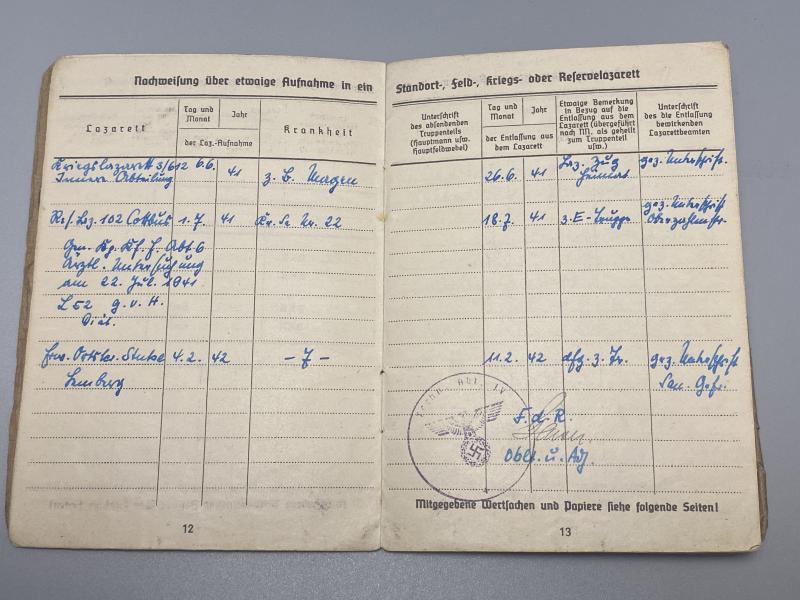 Nachweisung über etwaige Aufnahme in ein
Lazarett
Tag und Monat
Jahr
der Laz.-Aufnahme
Krankheit
Kriegslazarett 3/612 6.6. 41 z. B. Magen
Innere Abteilung
Res. Laz. 102 Cottbus 1.7. 41 Kr. Nr. 22
Ärztl. Untersuchung
am 22. Jul. 1941
L 52 g. v. H.
Ortskr. Stube 4.2. 42 - 7 -
Lemberg
12
Standort-, Feld-, Kriegs- oder Reservelazarett
Unterschrift
des absendenden
Truppenteils
(Hauptmann usw.
Hauptfeldwebel)
Tag und Monat
Jahr
der Entlassung aus
dem Lazarett
Etwaige Bemerkung
in Bezug auf die
Entlassung aus dem
Lazarett (übergeführt
nach NN. als geheilt
zum Truppenteil
usw.)
Unterschrift
des die Entlassung
bewirkenden
Lazarettbeamten
26.6. 41 Laz. Zug gez. Unterschrift
Heimat
18.7. 41 z. E-Truppe gez. Unterschrift
Oberzahlmstr.
11.2. 42 dfg. z. Tr. gez. Unterschrift
San. Gefr.
F. d. R.
Oblt. u. Adj.
Mitgegebene Wertsachen und Papiere siehe folgende Seiten!
13